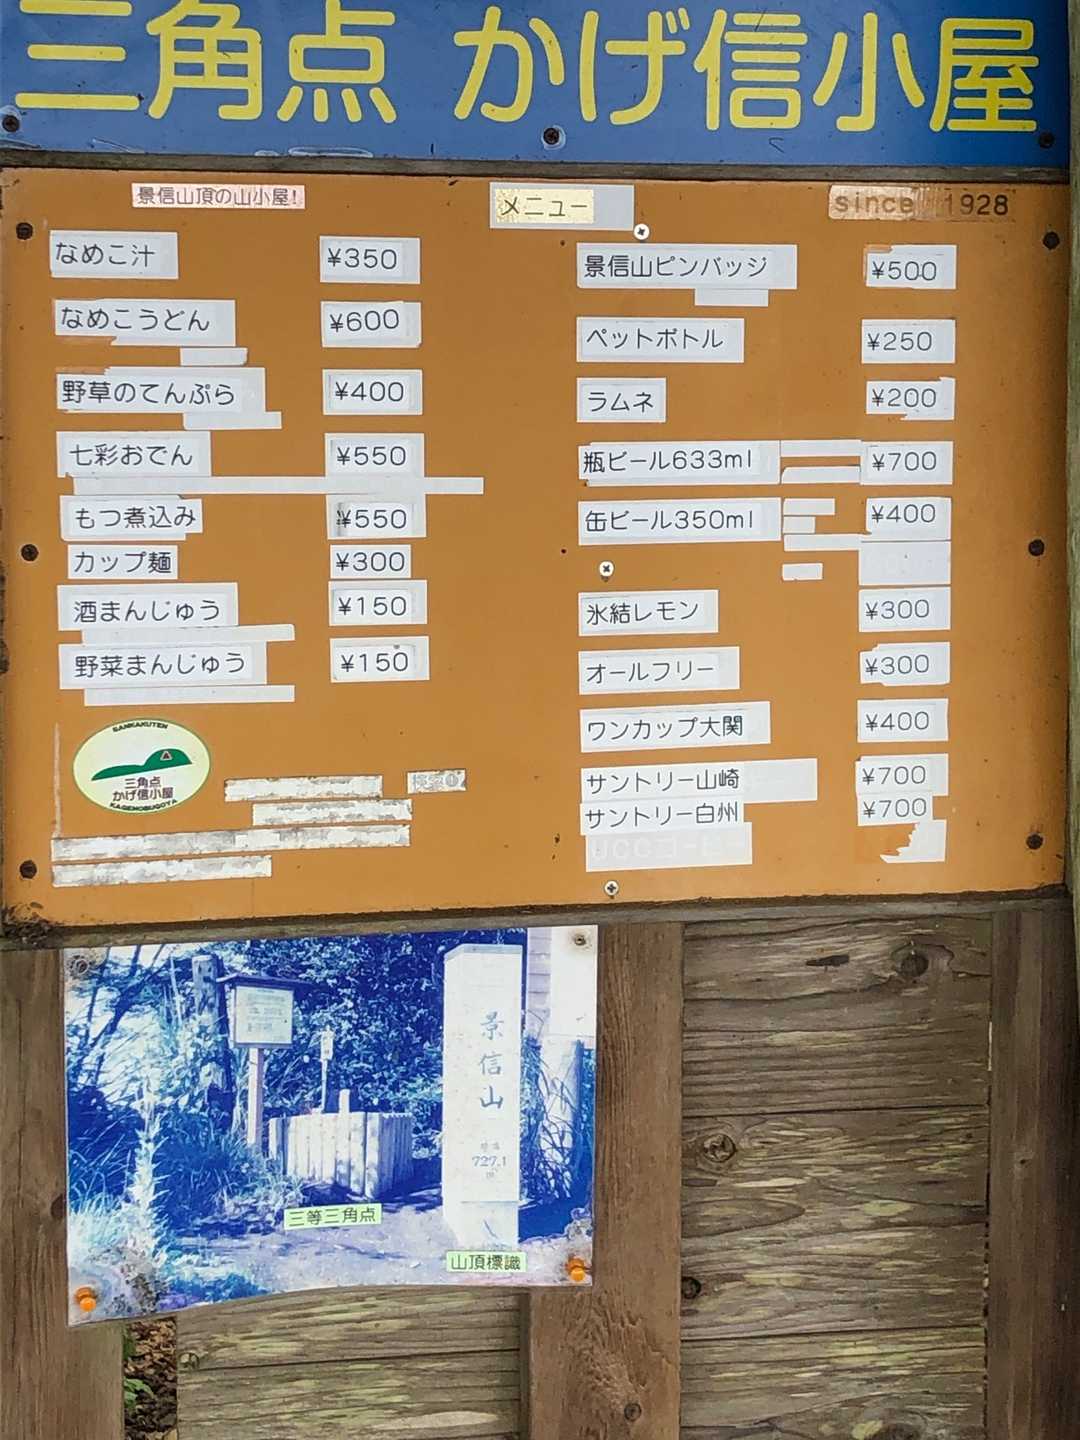 三角点 かげ信小屋
景信山頂の山小屋!
メニュー
since 1928
なめこ汁 ¥350
なめこうどん ¥600
野草のてんぷら ¥400
七彩おでん ¥550
もつ煮込み ¥550
カップ麺 ¥300
酒まんじゅう ¥150
野菜まんじゅう ¥150
景信山ピンバッジ ¥500
ペットボトル ¥250
ラムネ ¥200
瓶ビール633ml ¥700
缶ビール350ml ¥400
氷結レモン ¥300
オールフリー ¥300
ワンカップ大関 ¥400
サントリー山崎 ¥700
サントリー白州 ¥700
UCCコーヒー
SANKAKUTEN
三角点
かげ信小屋
KAGENOBUGOYA
景信山
標高
727.1
三等三角点
山頂標識